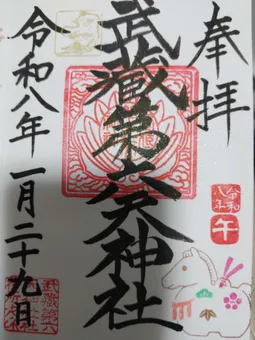 奉拝
武蔵第六天神社
令和八年一月二十九日
令和
八年
午